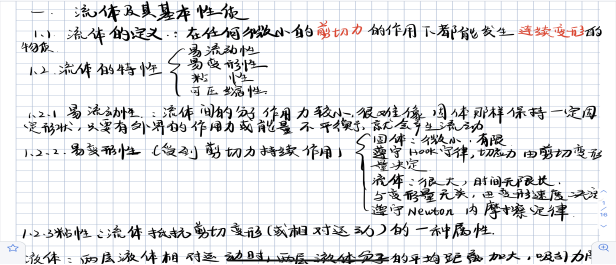 一. 流体及其基本性质
1.1 流体的定义：在任何微小的剪切力的作用下都能发生连续变形的
物质.
1.2 流体的特性
易流动性
易变形性
粘 性
可压缩性
1.2.1 易流动性：流体间的分子作用力较小,很难像固体那样保持一定固
定形状,只要有外界的作用力或能量不平衡,就会产生流动
1.2.2 易变形性（受到剪切力持续作用）
固体：微小,有限
遵守Hook定律,切应力由剪切变形
量决定
流体：很大,时间无限长
与变形量无关,由变形速度决定
遵守Newton内摩擦定律
1.2.3粘性：流体抵抗剪切变形(或相对运动)的一种属性
流体：两层液体相对运动时,两层流体分子的平均距离加大,吸引力